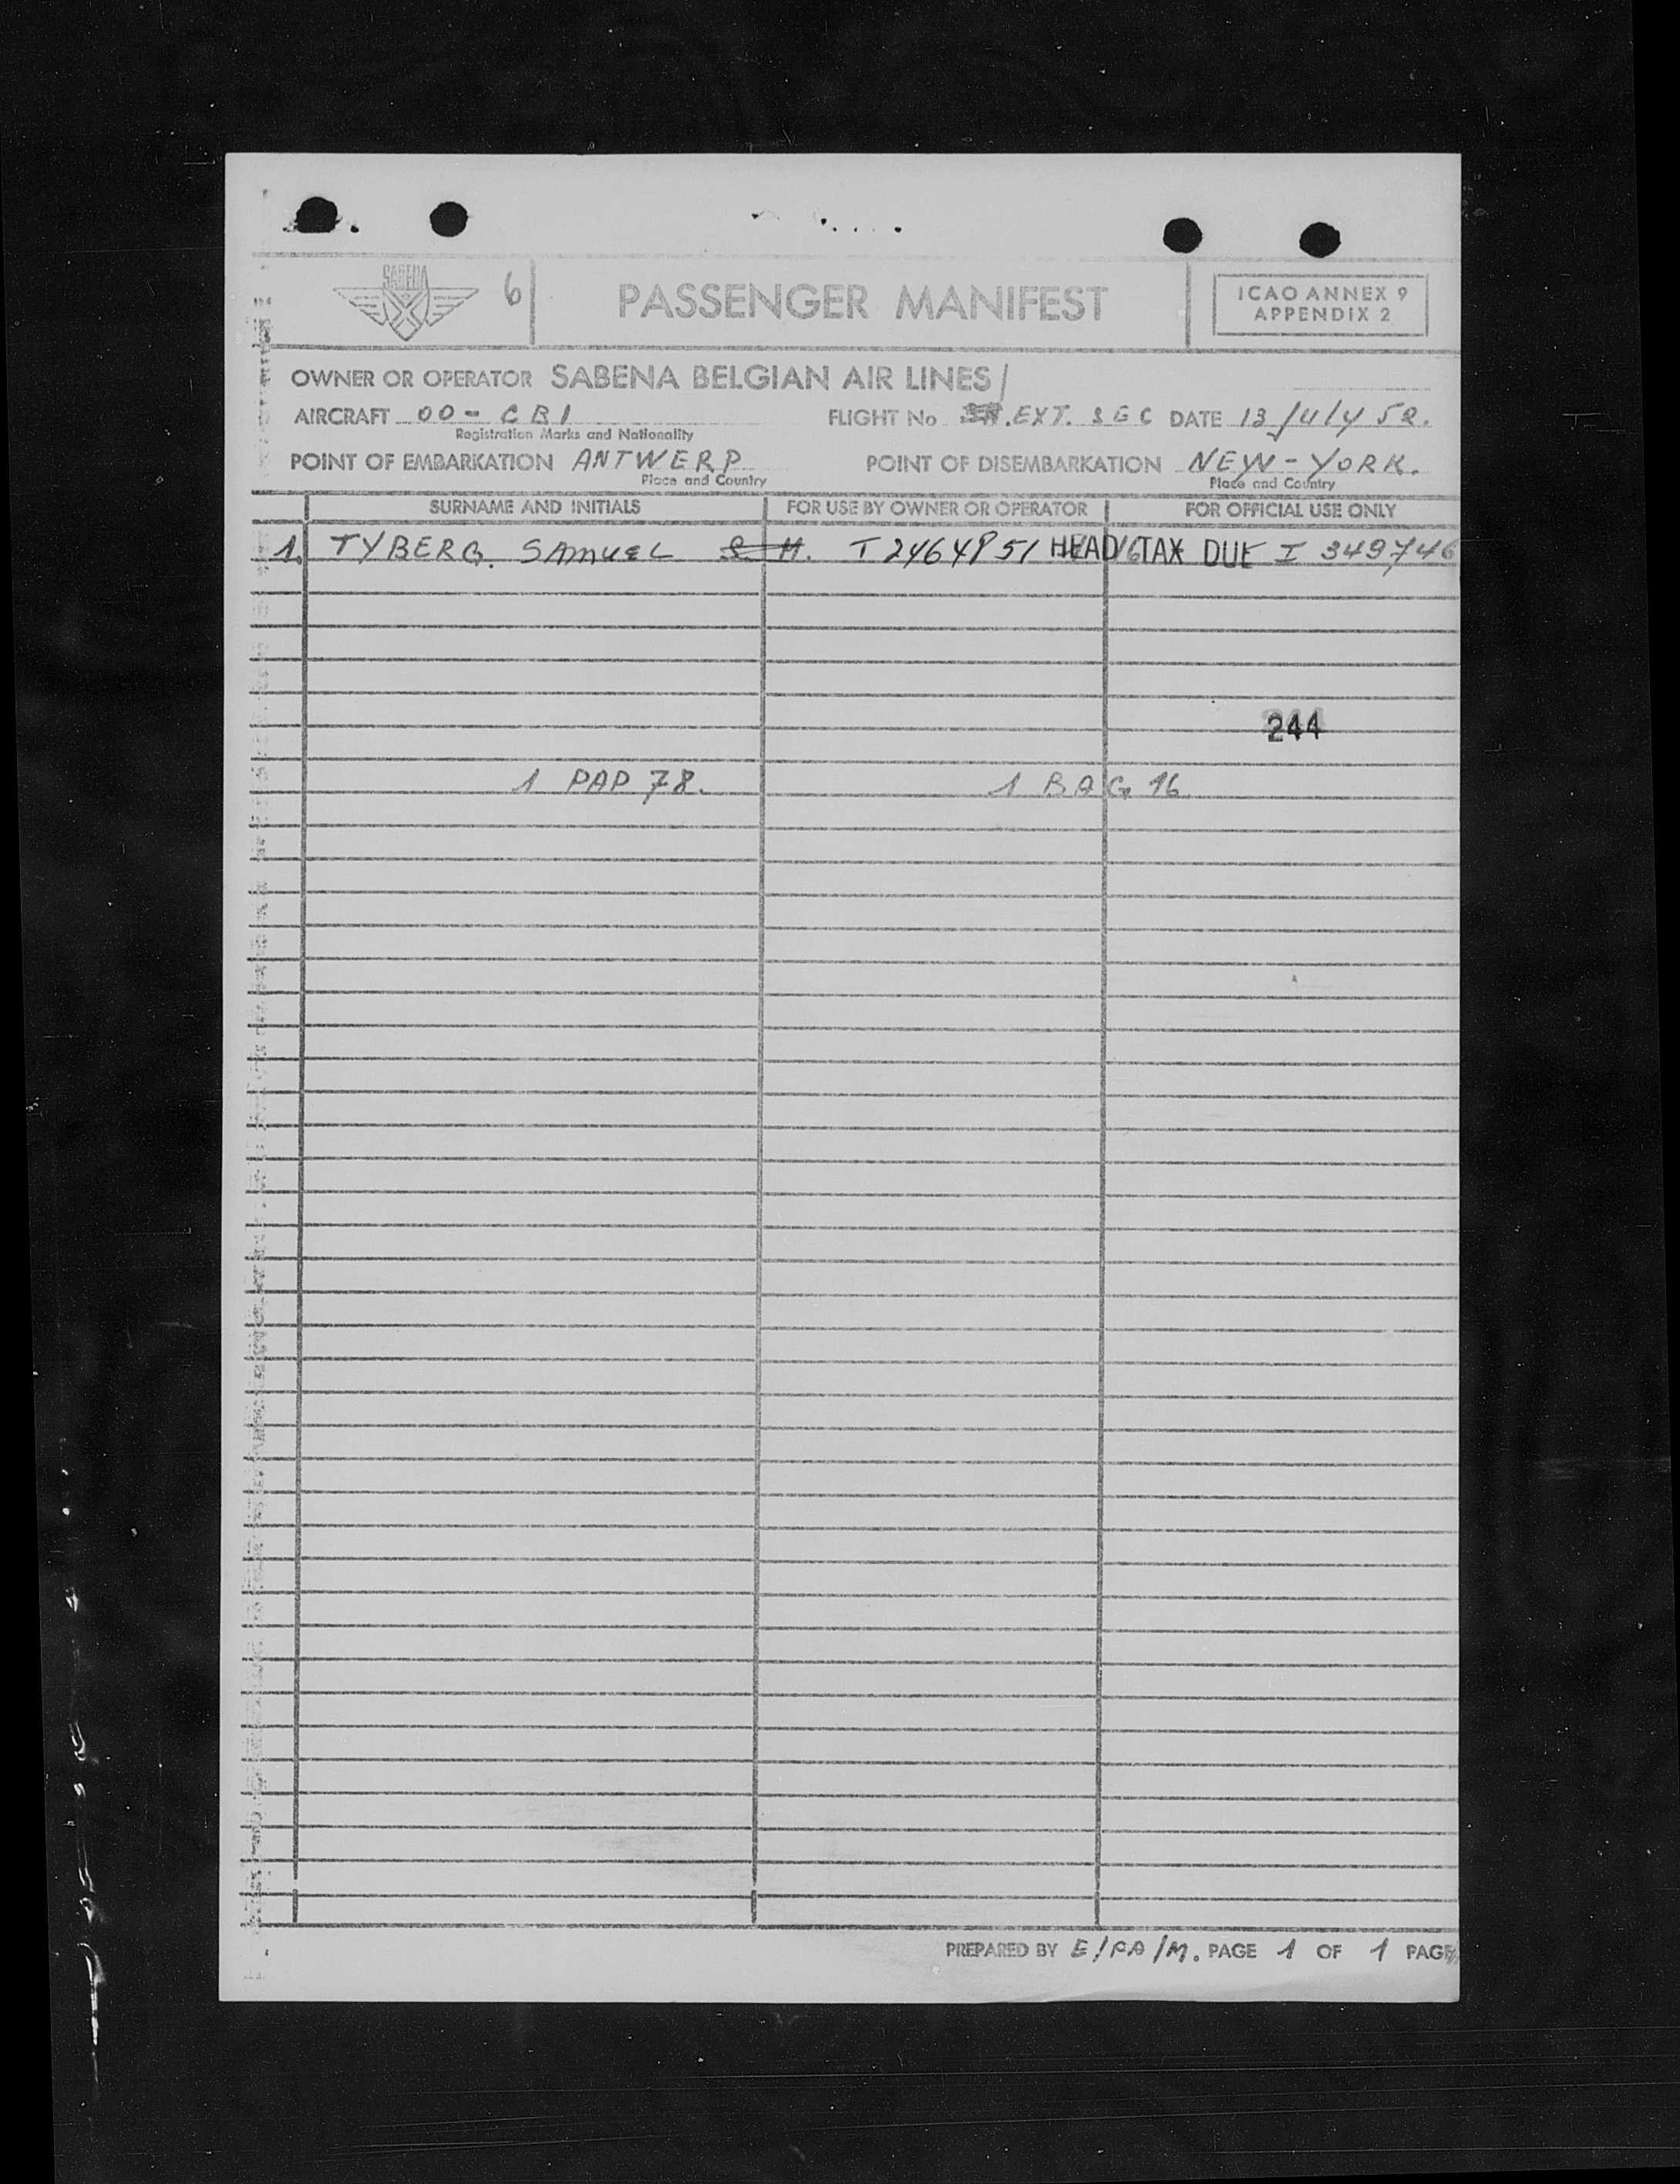 SABENA
6
PASSENGER MANIFEST
ICAO ANNEX 9
APPENDIX 2
OWNER OR OPERATOR SABENA BELGIAN AIR LINES
AIRCRAFT OO - CBI FLIGHT No EXT. SEC DATE
Registration Marks and Nationality
POINT OF EMBARKATION ANTWERP POINT OF DISEMBARKATION NEW-YORK.
Place and Country Place and Country
SURNAME AND INITIALS FOR USE BY OWNER OR OPERATOR FOR OFFICIAL USE ONLY
1. TYBERG. SAMUEL HEAD TAX DUE I 349746
244
1 PAP 78. 1 BAG 16
PREPARED BY PAGE 1 OF 1 PAGE